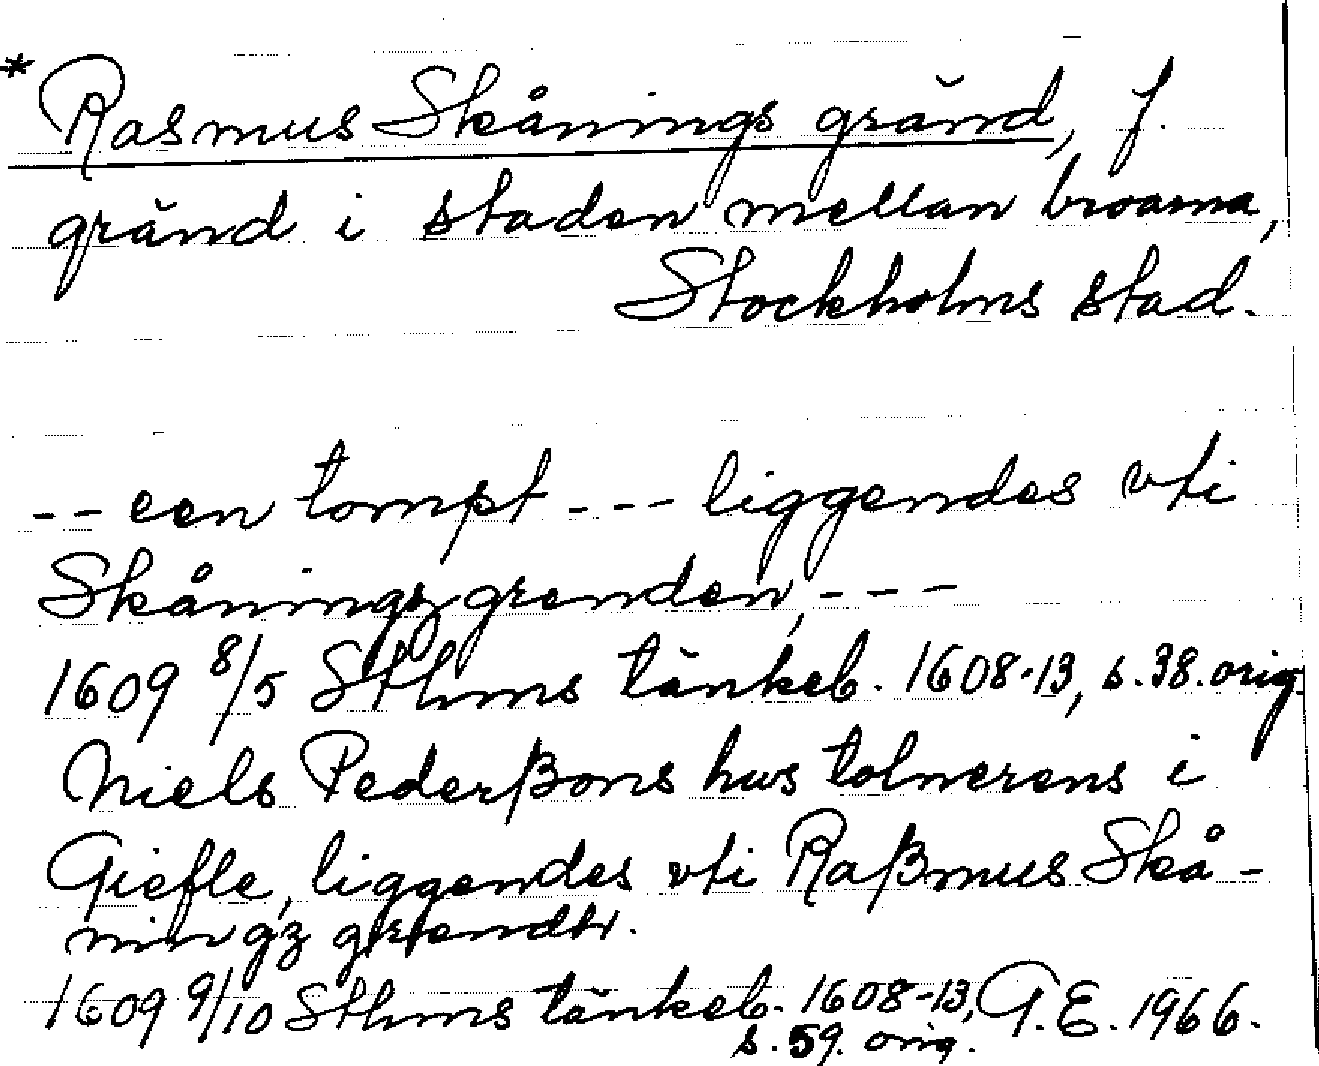 * Rasmus Skånings gränd, f.
gränd i staden mellan broarna,
Stockholms stad.
-- een tompt --- liggendes vti
Skåningzgrenden, ---
1609 8/5 Sthms tänkeb. 1608-13, s.38. orig.
Niels Pederßons hus tolnerens i
Giefle, liggendes vti Raßmus Skå-
ningz
1609 9/10 Sthms tänkeb. 1608-13, G.E. 1966.
s.59. orig.